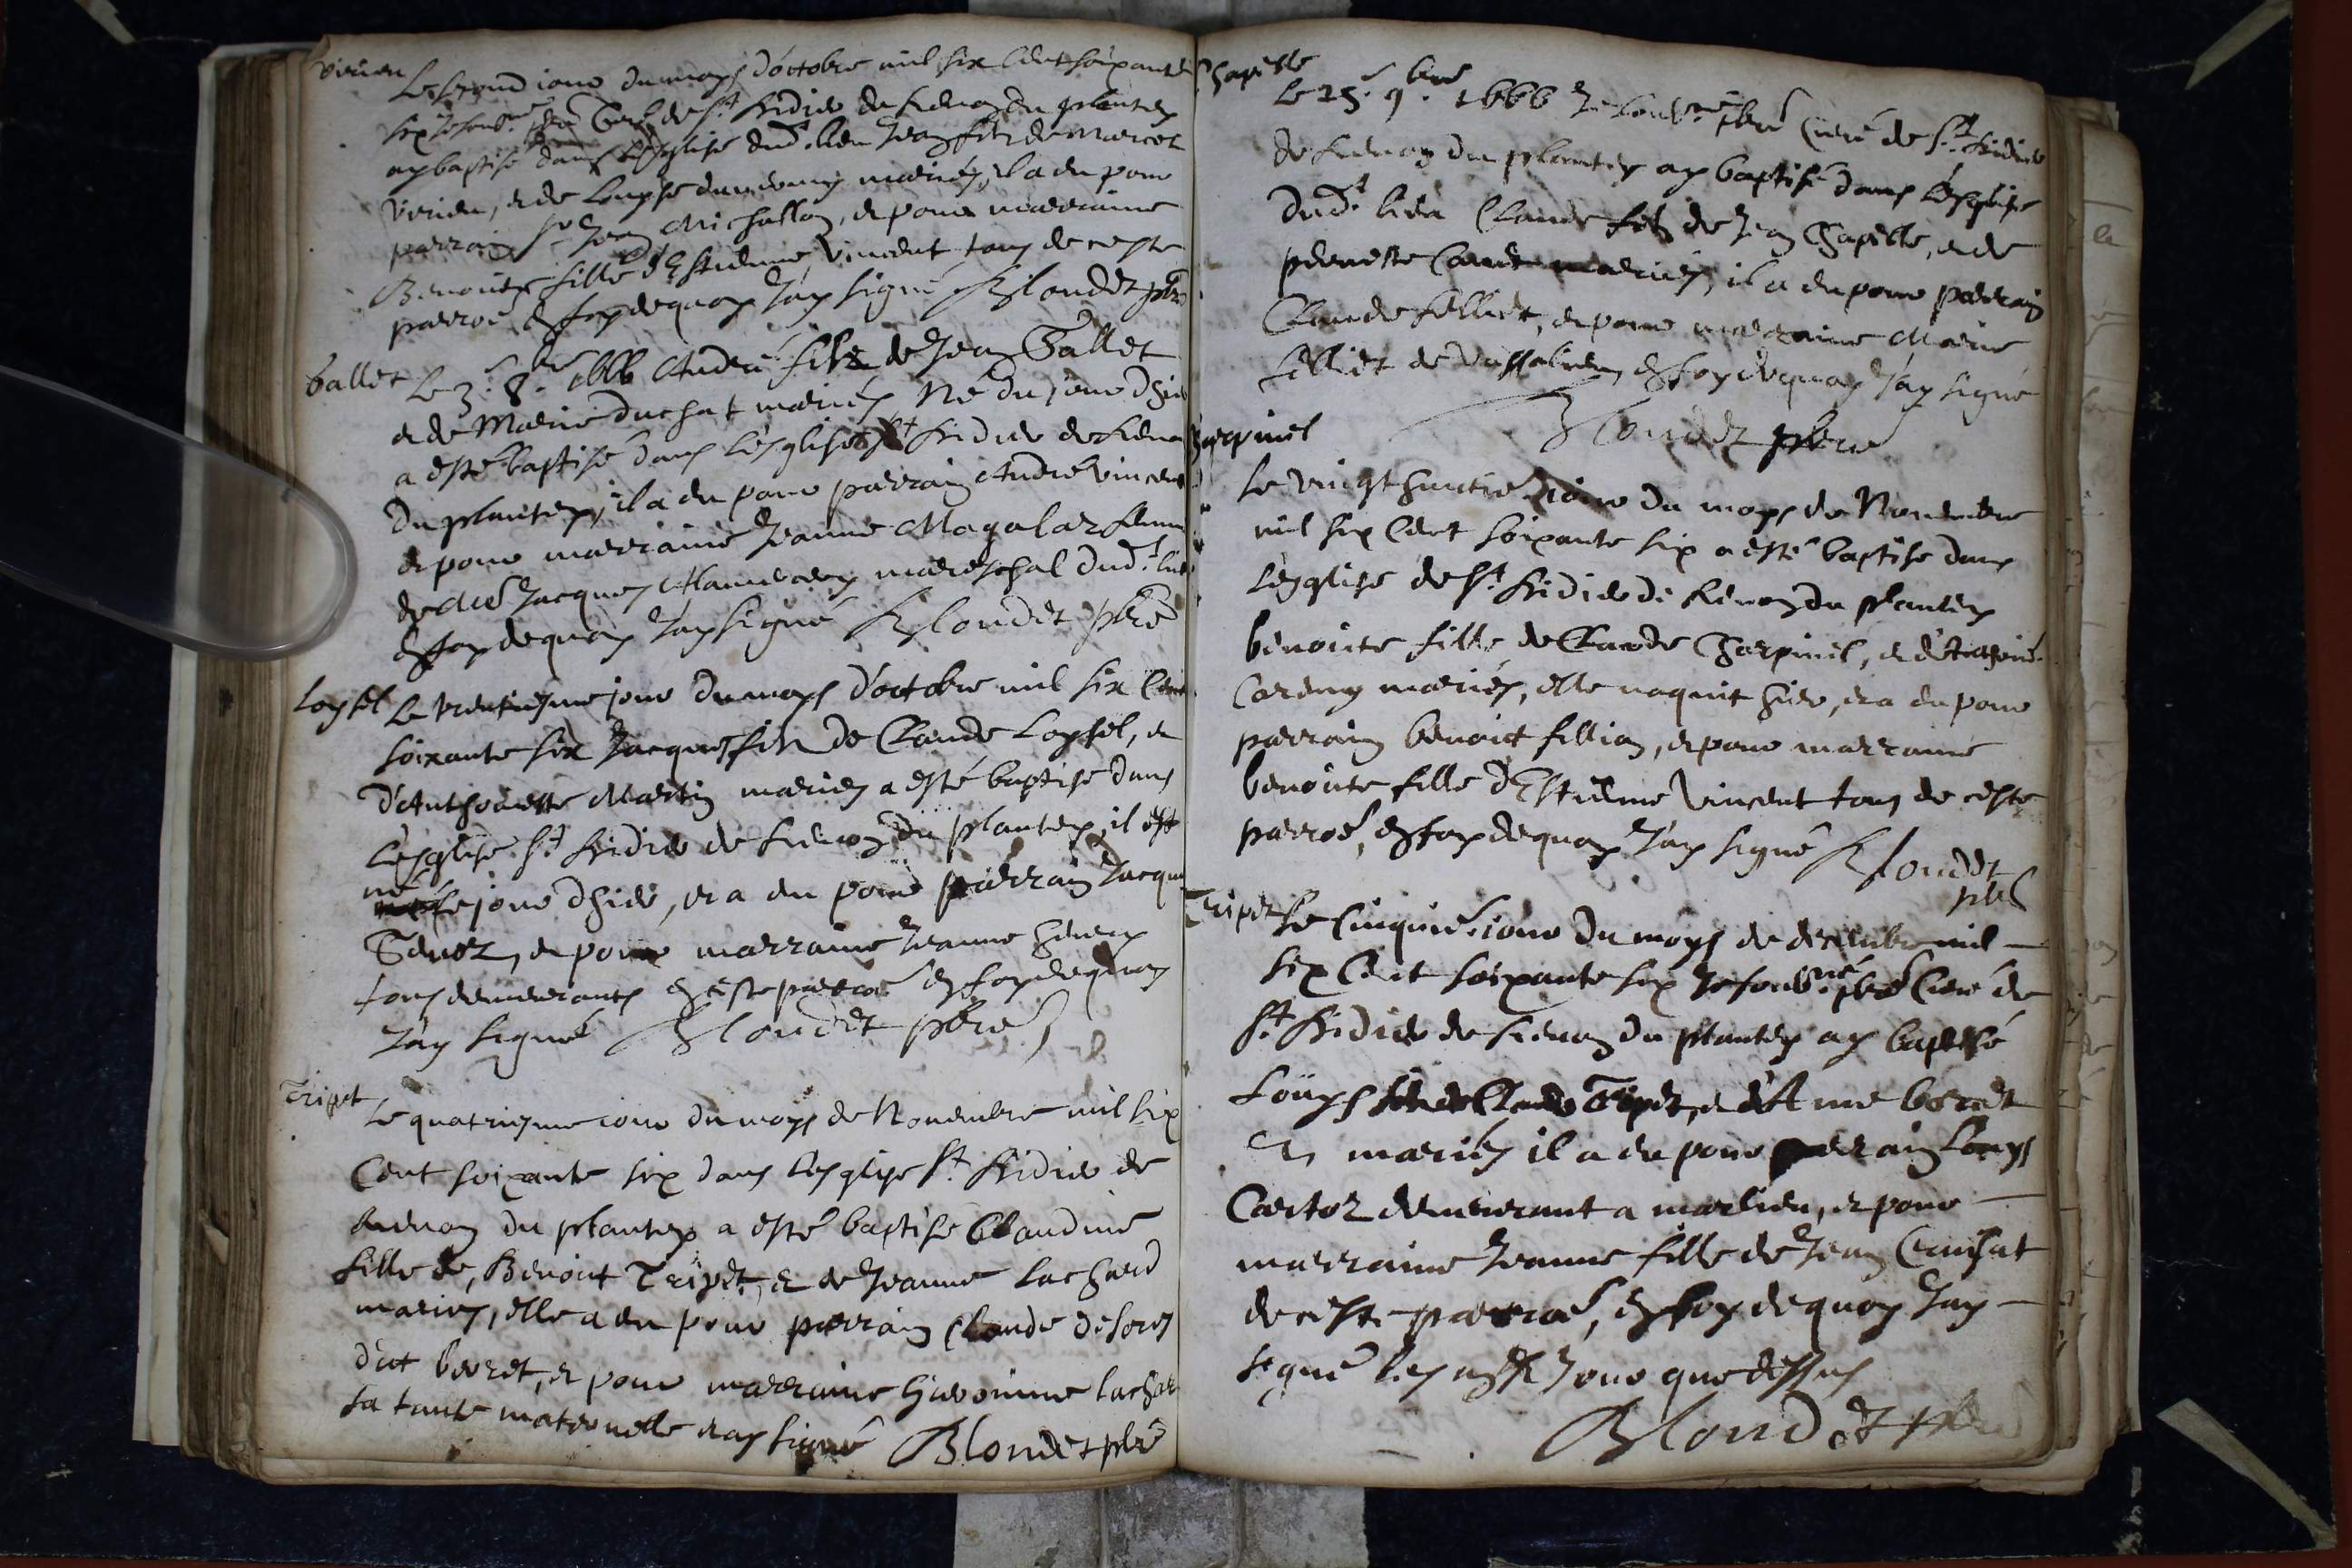 Verien
Le second jour du moys d'octobre mil six cent soixante
six Je soub.né pbre Curé de St Didier de Renon du plantey
ay baptisé dans l'esglise dud. lieu Jean fils de Marcot
Verien, et de Louyse mariés, il a eu pour
parrain Sr Jean Michallon, et pour marraine
Benoite fille d'Estienne Vincent tous de ceste
parroe, en foy de quoy J'ay signé Blondet pbre
ballet
Le 3.e 8.bre 1666 André fils de Jean Ballet
et de Marie Duchat mariés Né du jour d'hier
a esté baptisé dans l'esglise St Didier de Renon
du plantey, il a eu pour parrain André Vincent
et pour marraine Jeanne Magalar femme
de Me Jacques mareschal dud.t lieu
en foy de quoy J'ay signé Blondet pbre
Loysel
Le trentiesme jour du moys d'octobre mil six Cent
soixante six Jacques fils de Claude Loysel, et
d'Anthoinette Martin mariés a esté baptisé dans
l'esglise St Didier de Renon du plantey, il est
né le jour d'hier, et a eu pour parrain Jacque
Tenoz, et pour marraine Jeanne
tous demeurants en ceste parroe en foy de quoy
J'ay signé Blondet pbre
Tripet
Le quatriesme jour du moys de Novembre mil six
Cent soixante six dans l'esglise St Didier de
Renon du plantey a esté baptisé Claudine
fille de, Benoict Tripet, et de Jeanne Lachard
mariés, elle a eu pour parrain Claude
dit berret, et pour marraine Hieronime Lachar
sa tante maternelle et ay signé Blondet pbre
Chapelle
Le 25.e 9.bre 1666 Je soub.né pbre Curé de St. Didier
de Renon du plantey ay baptisé dans l'esglise
dud.t lieu Claude fils de Jean Chapelle, et de
pernette mariés, il a eu pour parrain
Claude felliet, et pour marraine Marie
felliet de Vassalieu en foy de quoy J'ay signé
Blondet pbre
Charpinel
Le vingt huictie. jour du moys de Novembre
mil six Cent soixante six a esté baptisé dans
l'esglise de St Didier de Renon du plantey
benoite fille de Claude Charpinel, et d'Anthoine
mariés, elle naquit hier, et a eu pour
parrain benoict fillion, et pour marraine
benoite fille d'Estienne Vincent tous de ceste
parroe, en foy de quoy J'ay signé Blondet
pbre
Tripet
Le Cinquie. jour du moys de decembre mil
six Cent soixante six Je soub.né pbre Curé de
St Didier de Renon du plantey ay baptisé
Loüys fils de Claude Tripet, et d'Anne
mariés il a eu pour parrain Louys
Cartoz demeurant a marlieu, et pour
marraine Jeanne fille de Jean
de ceste parroe, en foy de quoy J'ay
signé les an et Jour que dessus
Blondet pbre